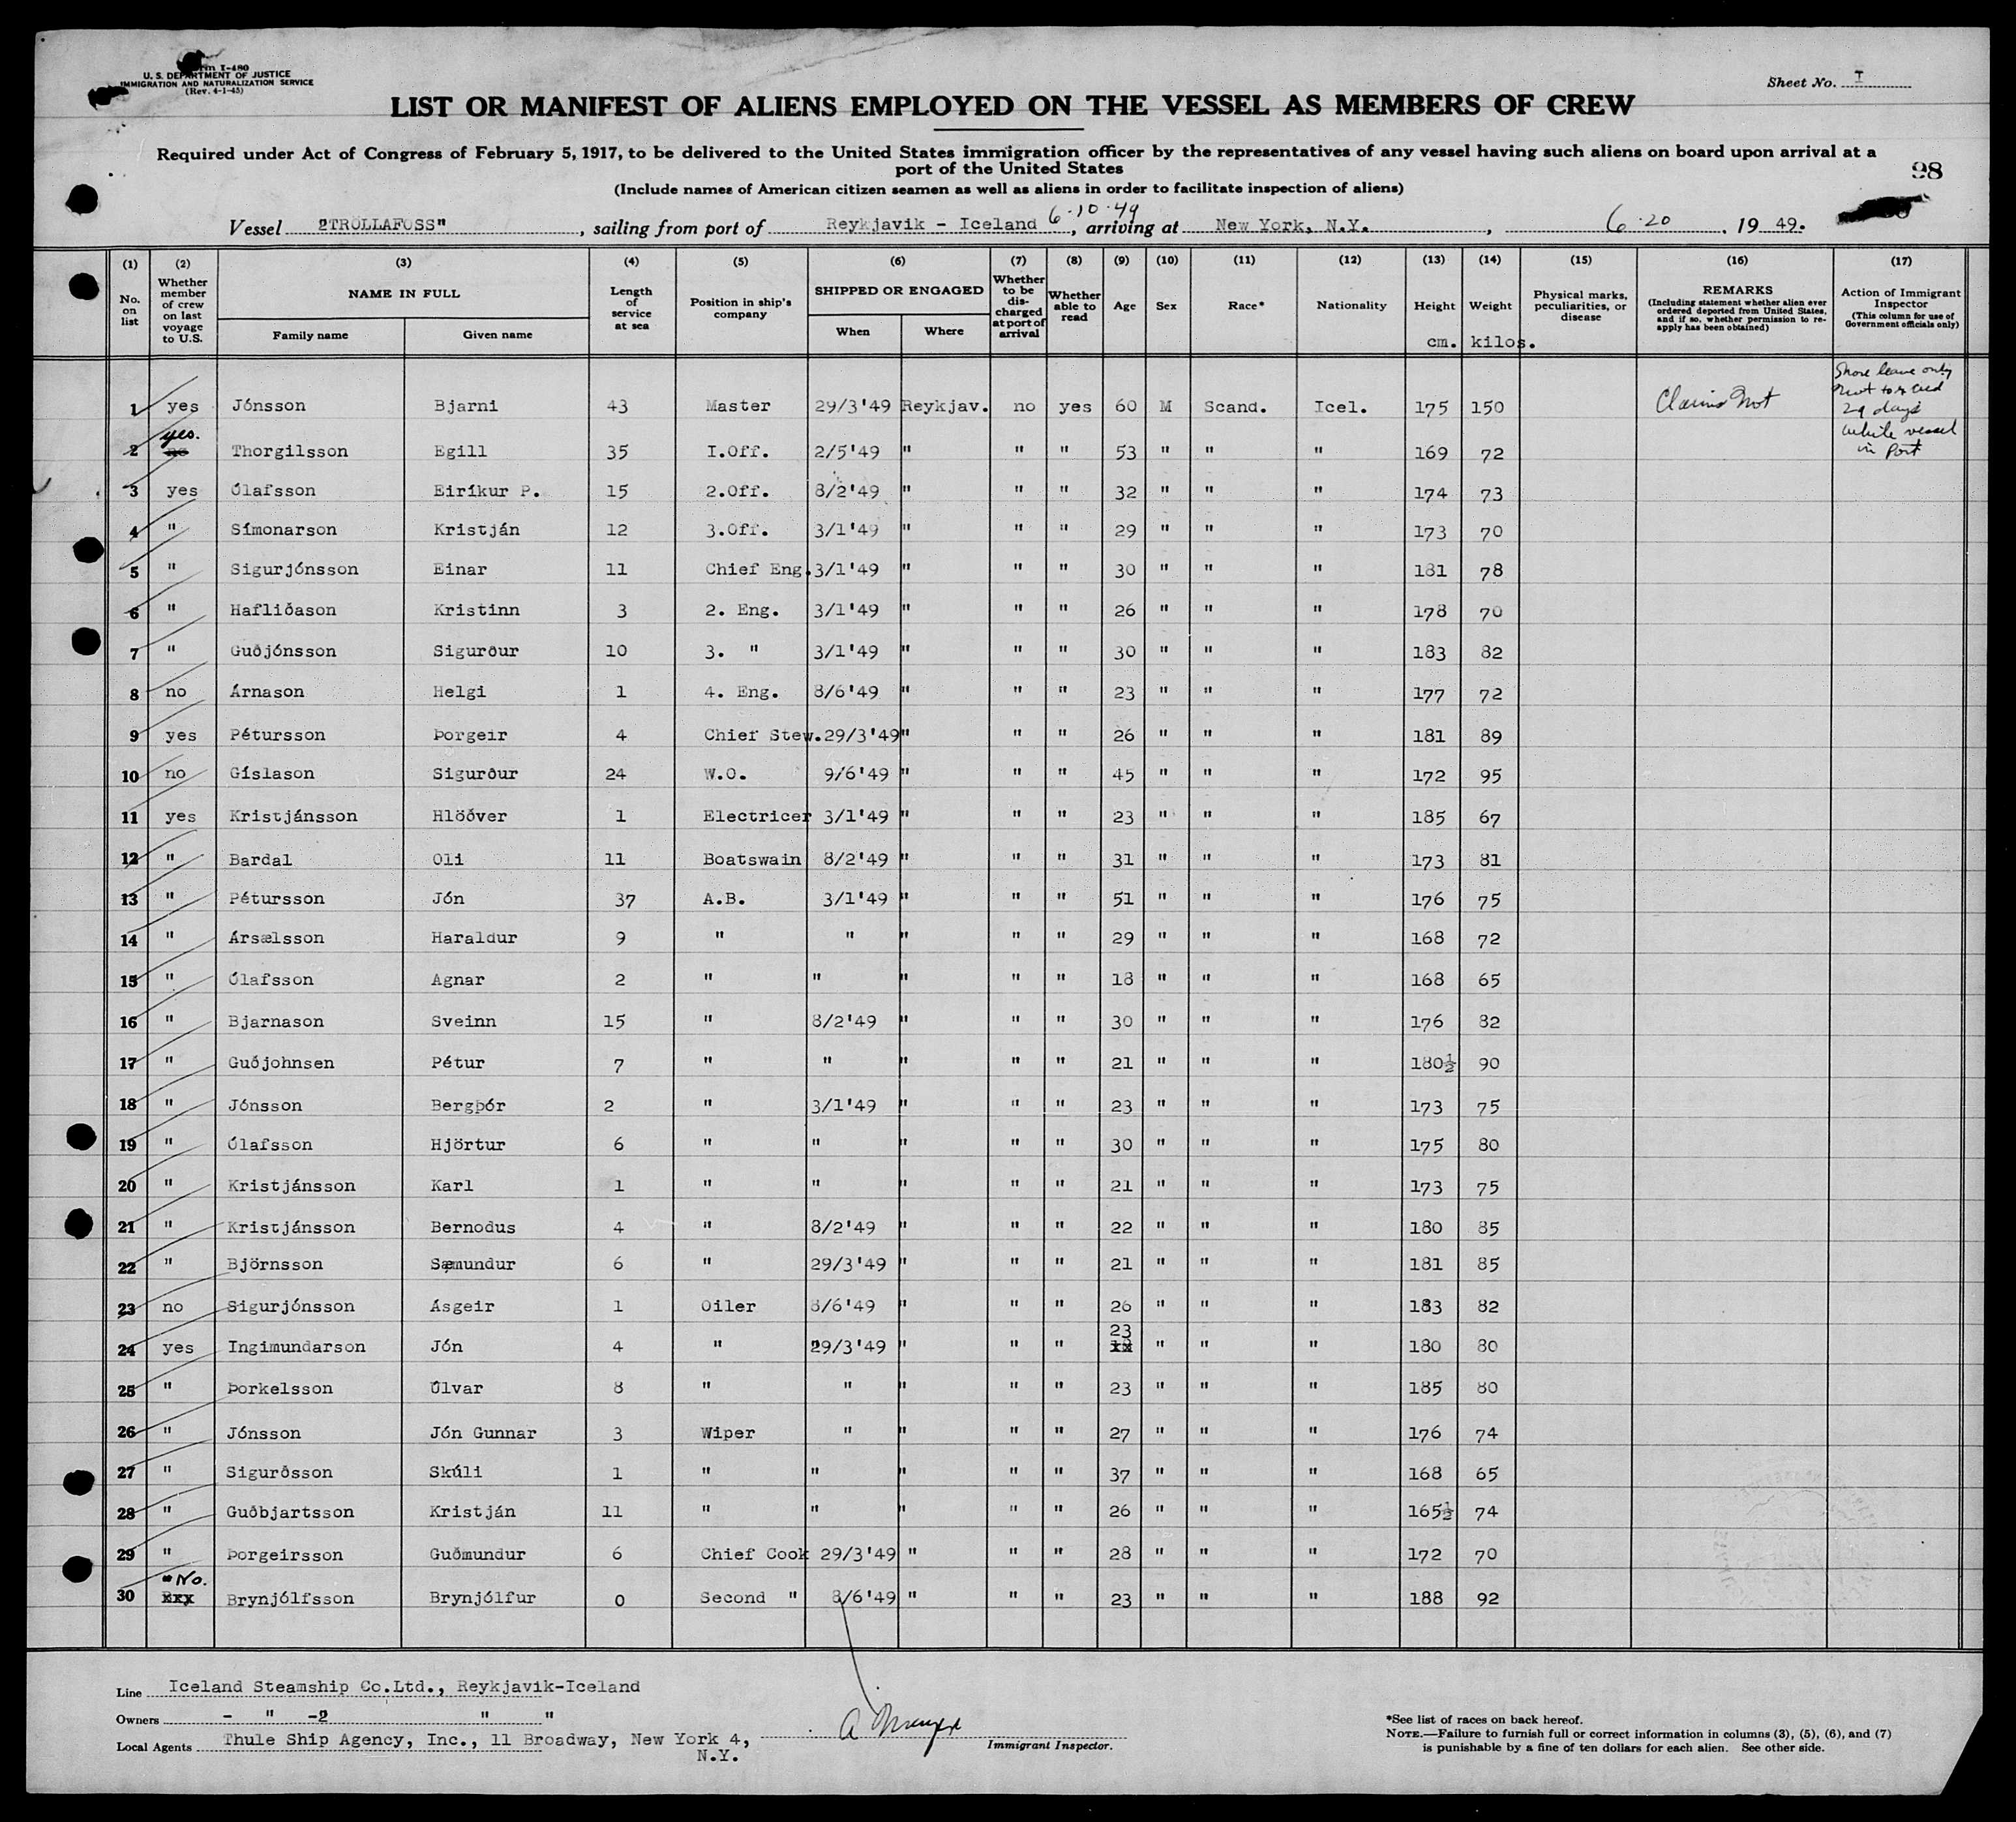 Form I-480
U. S. DEPARTMENT OF JUSTICE
IMMIGRATION AND NATURALIZATION SERVICE
(Rev. 4-1-45)
Sheet No. I
LIST OR MANIFEST OF ALIENS EMPLOYED ON THE VESSEL AS MEMBERS OF CREW
Required under Act of Congress of February 5, 1917, to be delivered to the United States immigration officer by the representatives of any vessel having such aliens on board upon arrival at a
port of the United States
98
(Include names of American citizen seamen as well as aliens in order to facilitate inspection of aliens)
Vessel "TRÖLLAFOSS", sailing from port of Reykjavik - Iceland 6-10-49, arriving at New York, N.Y., 6-20, 1949.
(1) (2) (3) (4) (5) (6) (7) (8) (9) (10) (11) (12) (13) (14) (15) (16) (17)
No. on list
Whether member of crew on last voyage to U.S.
NAME IN FULL
Family name Given name
Length of service at sea
Position in ship's company
SHIPPED OR ENGAGED
When Where
Whether to be discharged at port of arrival
Whether able to read
Age Sex Race* Nationality
Height cm.
Weight kilos.
Physical marks, peculiarities, or disease
REMARKS
(Including statement whether alien ever ordered deported from United States, and if so, whether permission to re-apply has been obtained)
Action of Immigrant Inspector
(This column for use of Government officials only)
Shore leave only
29 days
while vessel
in Port
1 yes Jónsson Bjarni 43 Master 29/3'49 Reykjav. no yes 60 M Scand. Icel. 175 150 Claims Not
2 yes. no Thorgilsson Egill 35 I.Off. 2/5'49 " " " 53 " " " 169 72
3 yes Ólafsson Eiríkur P. 15 2.Off. 8/2'49 " " " 32 " " " 174 73
4 " Símonarson Kristján 12 3.Off. 3/1'49 " " " 29 " " " 173 70
5 " Sigurjónsson Einar 11 Chief Eng. 3/1'49 " " " 30 " " " 181 78
6 " Hafliðason Kristinn 3 2. Eng. 3/1'49 " " " 26 " " " 178 70
7 " Guðjónsson Sigurður 10 3. " 3/1'49 " " " 30 " " " 183 82
8 no Árnason Helgi 1 4. Eng. 8/6'49 " " " 23 " " " 177 72
9 yes Pétursson Þorgeir 4 Chief Stew. 29/3'49 " " " 26 " " " 181 89
10 no Gíslason Sigurður 24 W.O. 9/6'49 " " " 45 " " " 172 95
11 yes Kristjánsson Hlöðver 1 Electricer 3/1'49 " " " 23 " " " 185 67
12 " Bardal Oli 11 Boatswain 8/2'49 " " " 31 " " " 173 81
13 " Pétursson Jón 37 A.B. 3/1'49 " " " 51 " " " 176 75
14 " Ársælsson Haraldur 9 " " " " " 29 " " " 168 72
15 " Ólafsson Agnar 2 " " " " " 18 " " " 168 65
16 " Bjarnason Sveinn 15 " 8/2'49 " " " 30 " " " 176 82
17 " Guðjohnsen Pétur 7 " " " " " 21 " " " 180½ 90
18 " Jónsson Bergþór 2 " 3/1'49 " " " 23 " " " 173 75
19 " Ólafsson Hjörtur 6 " " " " " 30 " " " 175 80
20 " Kristjánsson Karl 1 " " " " " 21 " " " 173 75
21 " Kristjánsson Bernodus 4 " 8/2'49 " " " 22 " " " 180 85
22 " Björnsson Sæmundur 6 " 29/3'49 " " " 21 " " " 181 85
23 no Sigurjónsson Ásgeir 1 Oiler 8/6'49 " " " 26 " " " 183 82
24 yes Ingimundarson Jón 4 " 29/3'49 " " " 23 " " " 180 80
25 " Þorkelsson Úlvar 8 " " " " " 23 " " " 185 80
26 " Jónsson Jón Gunnar 3 Wiper " " " " 27 " " " 176 74
27 " Sigurðsson Skúli 1 " " " " " 37 " " " 168 65
28 " Guðbjartsson Kristján 11 " " " " " 26 " " " 165½ 74
29 " Þorgeirsson Guðmundur 6 Chief Cook 29/3'49 " " " 28 " " " 172 70
30 " No. Brynjólfsson Brynjólfur 0 Second " 8/6'49 " " " 23 " " " 188 92
Line Iceland Steamship Co.Ltd., Reykjavik-Iceland
Owners - " -2 " "
Local Agents Thule Ship Agency, Inc., 11 Broadway, New York 4,
N.Y.
Immigrant Inspector.
*See list of races on back hereof.
NOTE.—Failure to furnish full or correct information in columns (3), (5), (6), and (7)
is punishable by a fine of ten dollars for each alien. See other side.